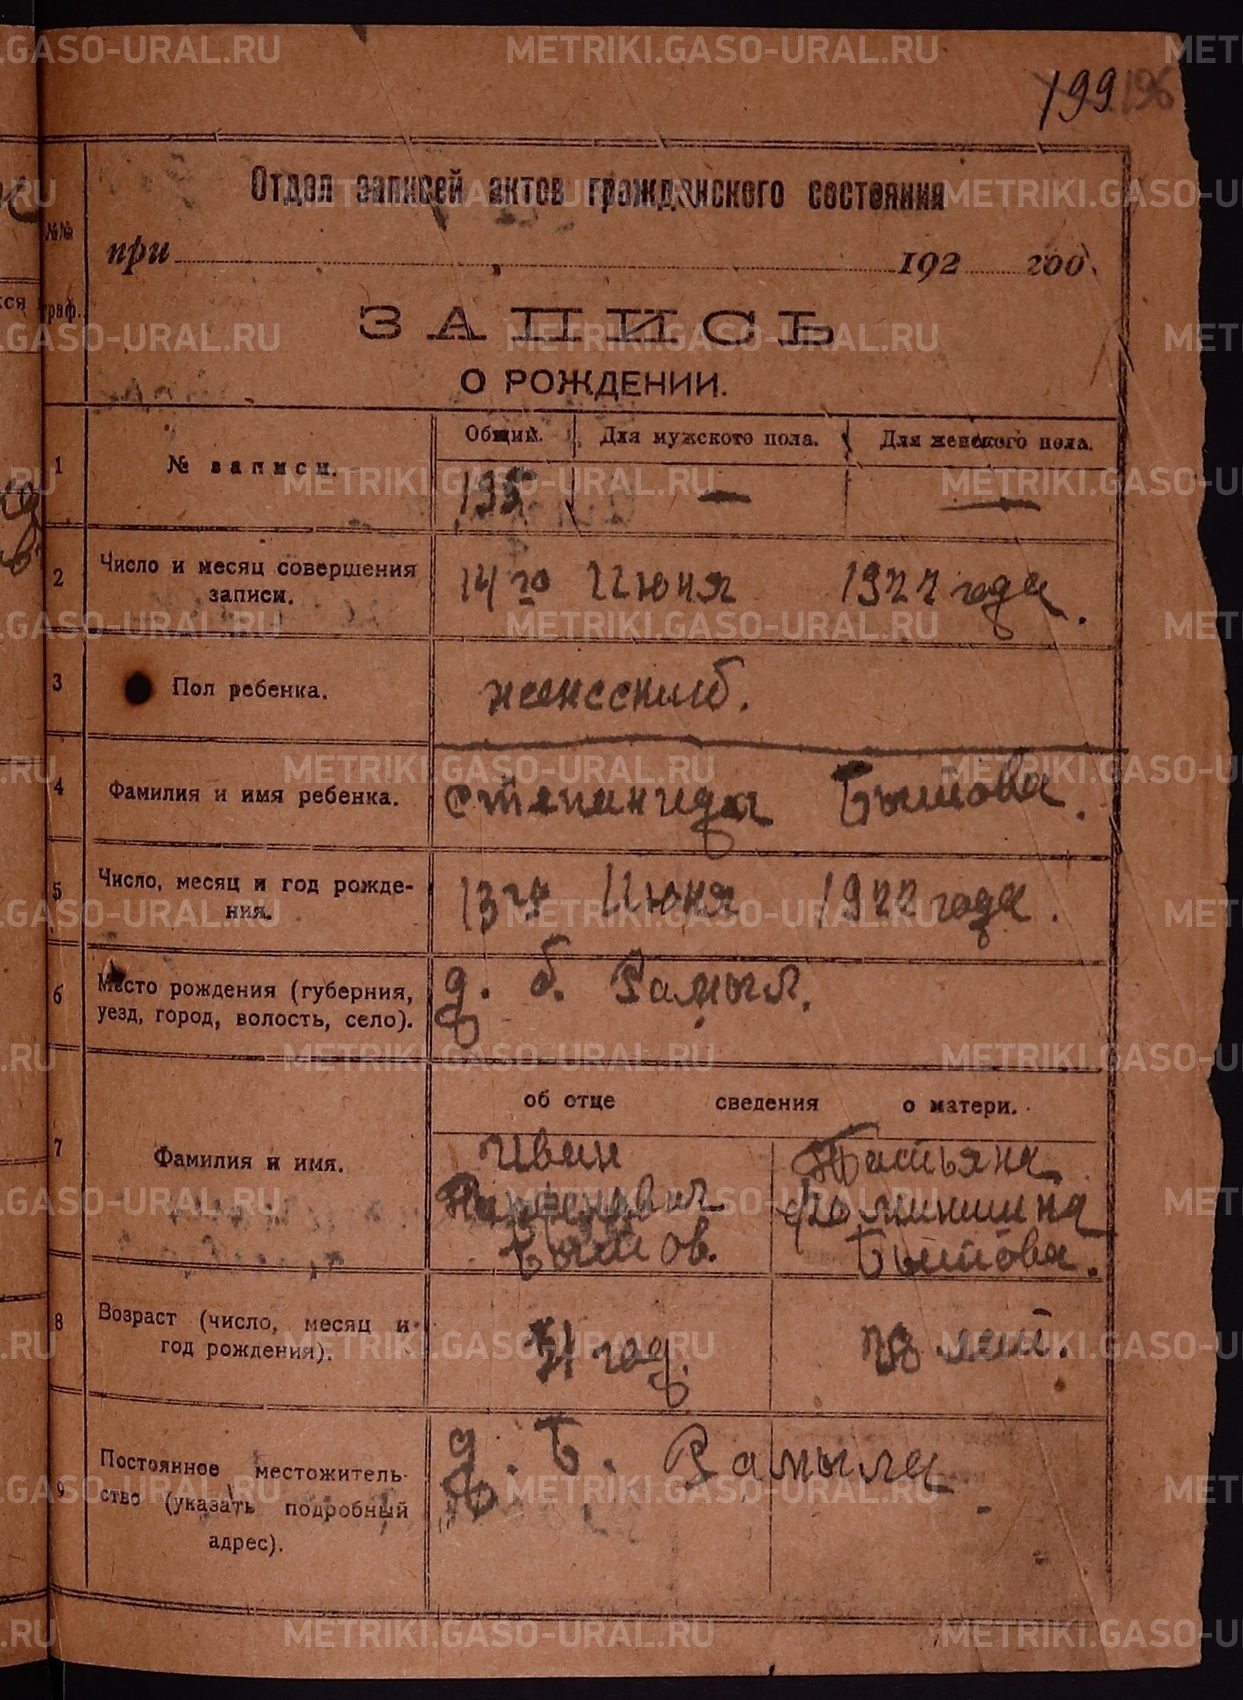 199 196
Отдел записей актов гражданского состояния
№№
граф.
при 192 год.
ЗАПИСЬ
О РОЖДЕНИИ.
1 № записи. Общий. Для мужского пола. Для женского пола.
195 — —
2 Число и месяц совершения записи. 14го Июня 1922 года.
3 Пол ребенка. женский.
4 Фамилия и имя ребенка. Степанида Бытова.
5 Число, месяц и год рождения. 13го Июня 1922 года.
6 Место рождения (губерния, уезд, город, волость, село). д. Б. Рамыл.
об отце сведения о матери.
7 Фамилия и имя.
Иван Татьяна
Парфенович Фоминишна
Бытов. Бытова.
8 Возраст (число, месяц и год рождения). 31 год. 28 лет.
9 Постоянное местожительство (указать подробный адрес). д. Б. Рамыла
METRIKI.GASO-URAL.RU